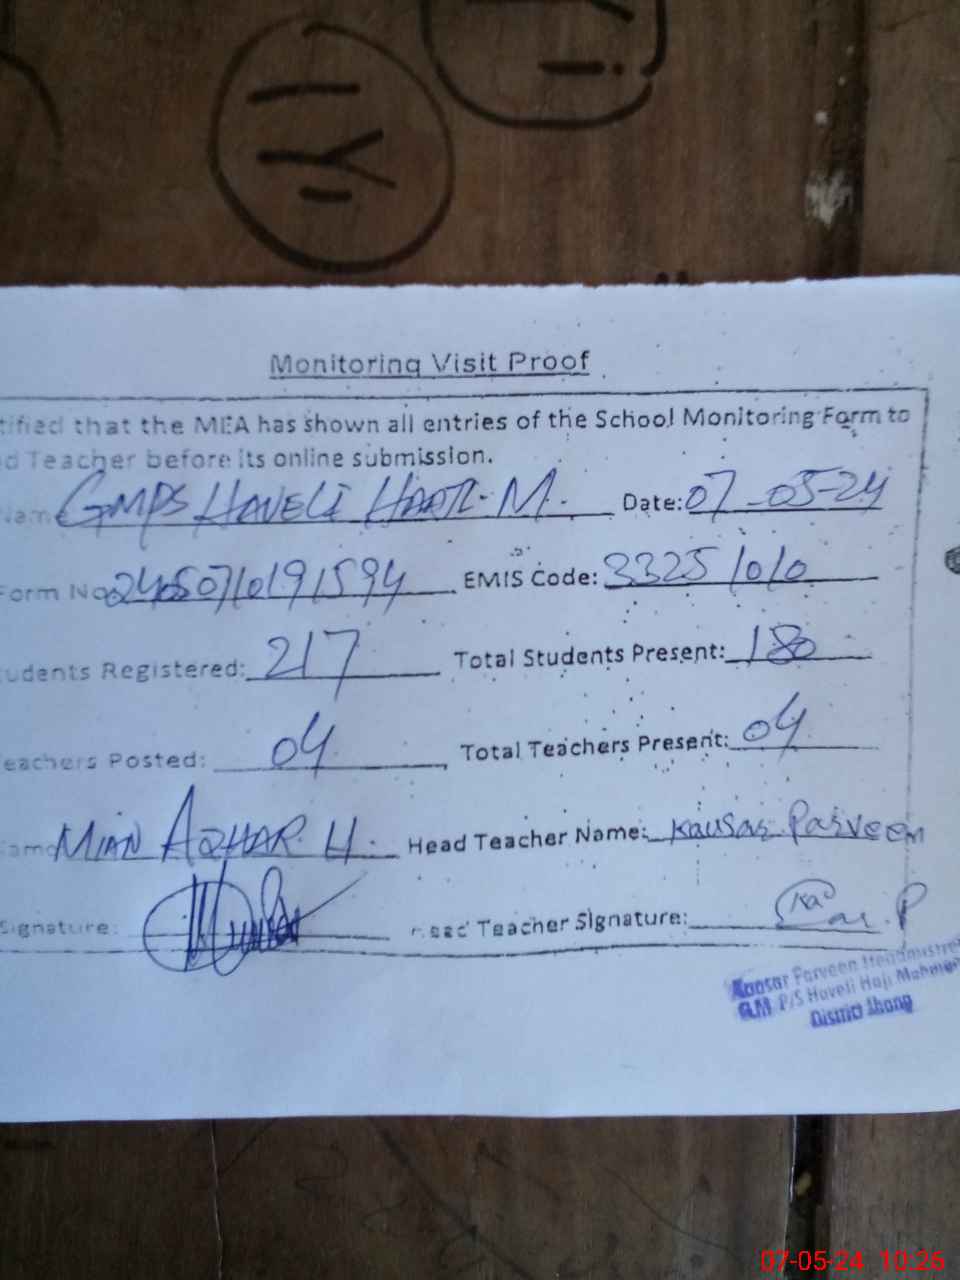 Monitoring Visit Proof
tified that the MEA has shown all entries of the School Monitoring Form to
d Teacher before its online submission.
Name GMPS HAVELI M. Date: 07-05-24
Form No 24050710191594 EMIS Code: 33251010
udents Registered: 217 Total Students Present: 180
eachers Posted: 04 Total Teachers Present: 04
ame MIAN AZHAR H. Head Teacher Name: Kausar Parveen
Signature: Head Teacher Signature:
Kaosar Parveen Headmistre
G.M P/S Haveli Haji Mahm
District Jhang
07-05-24 10:26